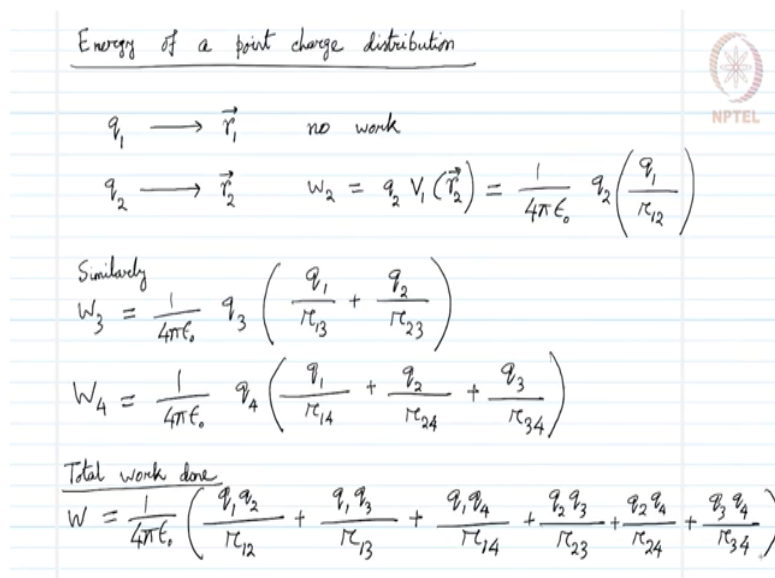 Energy of a point charge distribution
NPTEL
q₁ ⟶ r⃗₁ no work
q₂ ⟶ r⃗₂ W₂ = q₂ V₁(r⃗₂) = 1/4πϵ₀ q₂ (q₁/r₁₂)
Similarly
W₃ = 1/4πϵ₀ q₃ (q₁/r₁₃ + q₂/r₂₃)
W₄ = 1/4πϵ₀ q₄ (q₁/r₁₄ + q₂/r₂₄ + q₃/r₃₄)
Total work done
W = 1/4πϵ₀ (q₁q₂/r₁₂ + q₁q₃/r₁₃ + q₁q₄/r₁₄ + q₂q₃/r₂₃ + q₂q₄/r₂₄ + q₃q₄/r₃₄)